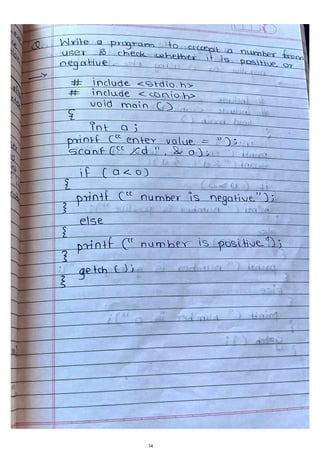 Q. Write a program to accept a number from
user & check whether it is positive or
negative
→ # include <stdio.h>
# include <conio.h>
void main ( )
{
int a ;
printf (" enter value = ");
scanf (" %d ", & a);
if ( a < 0 )
{
printf (" number is negative ");
}
else
{
printf (" number is positive ");
}
getch ( );
}
14